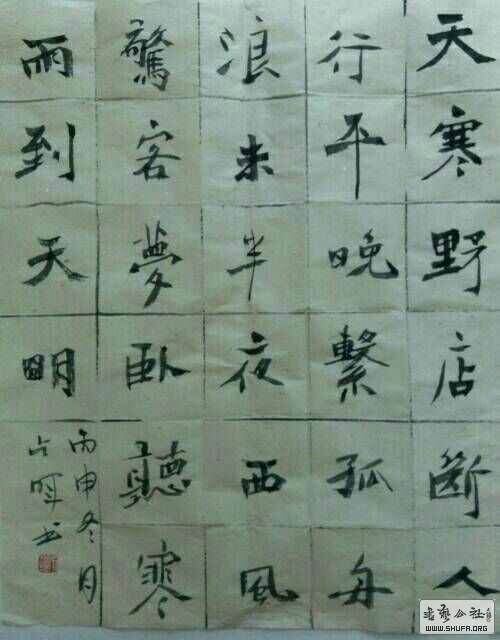 天寒野店断人
行平晚繫孤舟
浪未半夜西風
驚客夢臥聽寒
雨到天明
丙申冬月
占暉书
书艺公社
WWW.SHUFA.ORG